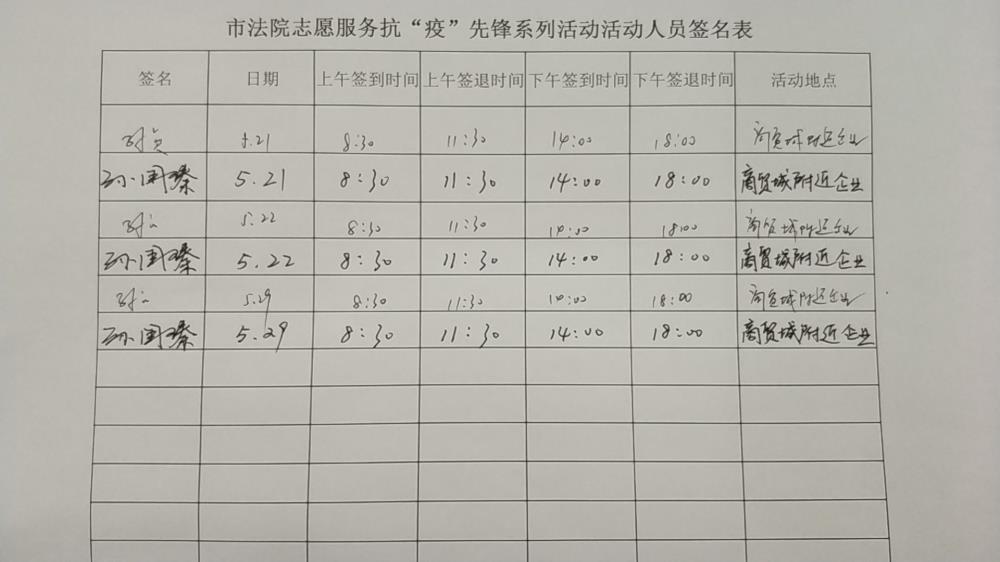 市法院志愿服务抗“疫”先锋系列活动活动人员签名表
签名 日期 上午签到时间 上午签退时间 下午签到时间 下午签退时间 活动地点
5.21 8:30 11:30 14:00 18:00 商贸城附近企业
孙国 5.21 8:30 11:30 14:00 18:00 商贸城附近企业
5.22 8:30 11:30 14:00 18:00 商贸城附近企业
孙国 5.22 8:30 11:30 14:00 18:00 商贸城附近企业
5.29 8:30 11:30 14:00 18:00 商贸城附近企业
孙国 5.29 8:30 11:30 14:00 18:00 商贸城附近企业